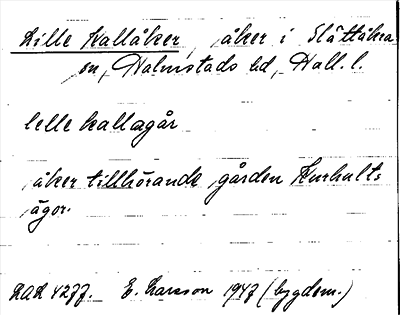 Lille kallåker, åker i Slättåkra
sn, Halmstads hd, Hall. l.
lelle kallagår
åker tillhörande gården Kurhults
ägor.
E. Larsson 1947 (bygdem.)